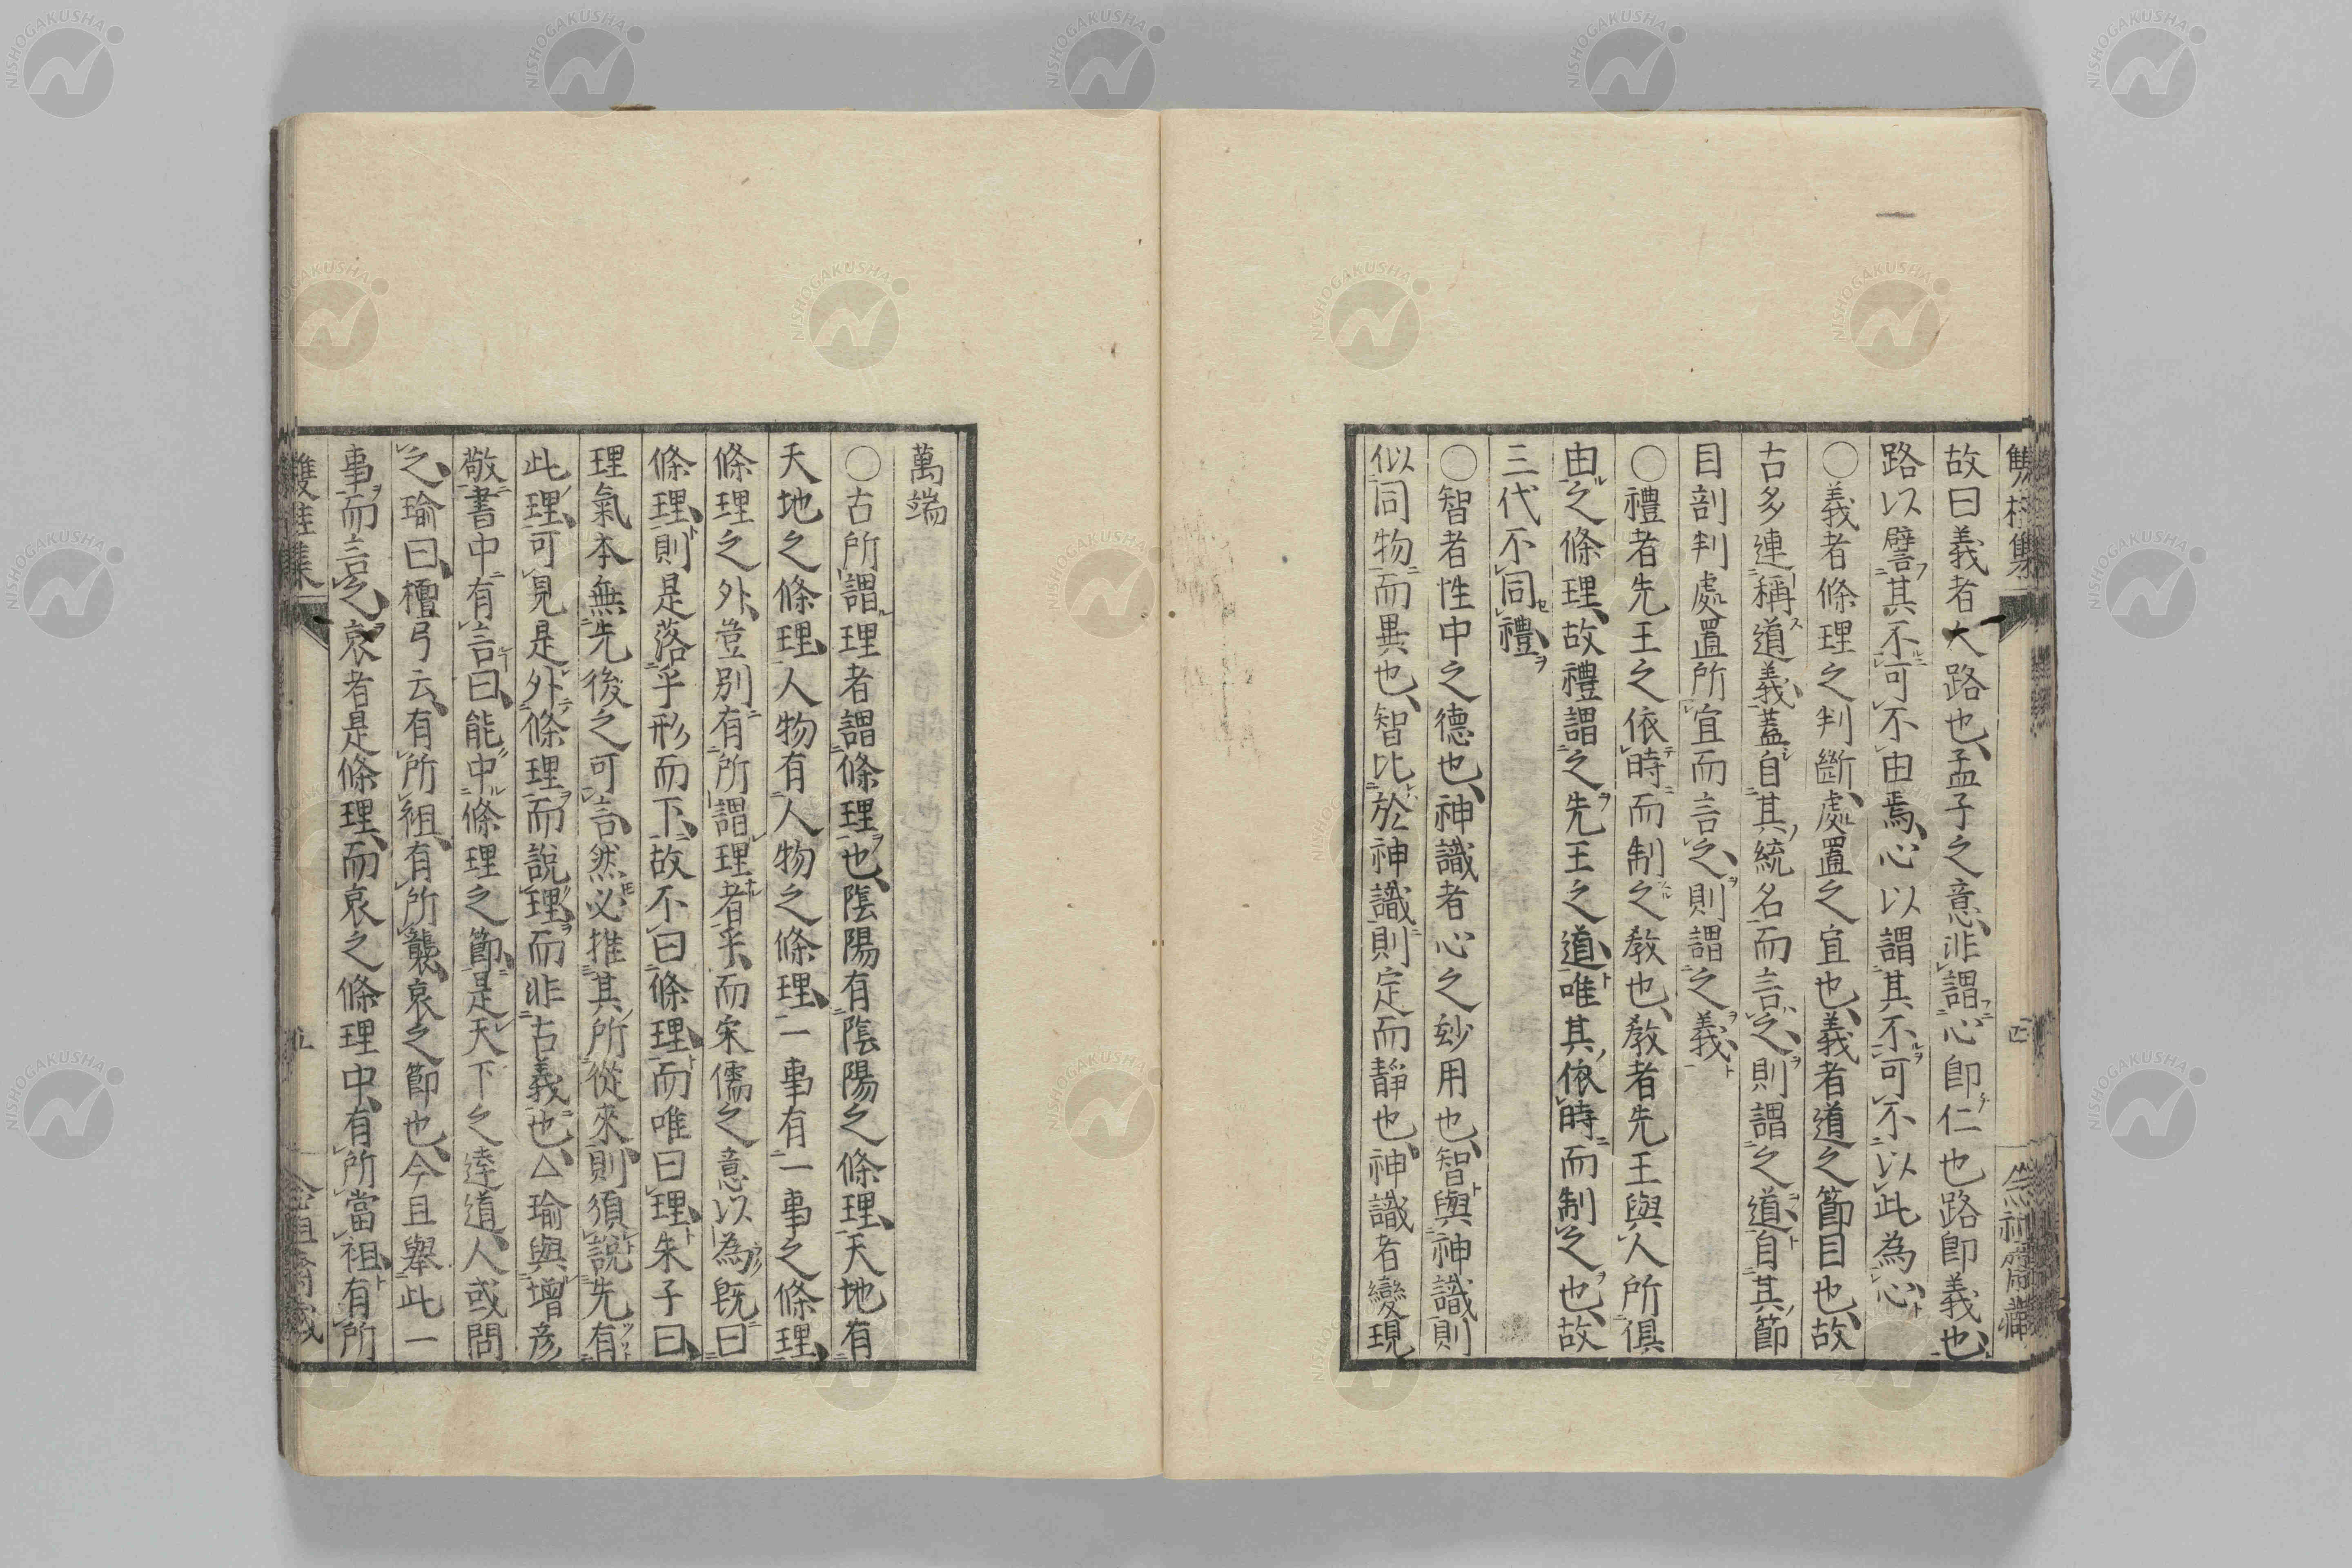 故曰義者大路也孟子之意非謂心即仁也路即義也
路以譬其不可不由焉心以謂其不可不以此為心
○義者條理之判斷處置之宜也義者道之節目也故
古多連稱道義蓋自其統名而言之則謂之道自其節
目剖判處置所宜而言之則謂之義
○禮者先王之依時而制之教也教者先王與人所俱
由之條理故禮謂之先王之道唯其依時而制之也故
三代不同禮
○智者性中之德也神識者心之玅用也智與神識則
似同物而異也智比於神識則定而靜也神識者變現
萬端
○古所謂理者謂條理也陰陽有陰陽之條理天地有
天地之條理人物有人物之條理一事有一事之條理
條理之外豈別有所謂理者乎而宋儒之意以為既曰
條理則是落乎形而下故不曰條理而唯曰理朱子曰
理氣本無先後之可言然必推其所從來則須說先有
此理可見是外條理而說理而非古義也△瑜與增彥
敬書中有言曰能中條理之節是天下之達道人或問
之瑜曰檀弓云有所祖有所襲哀之節也今且舉此一
事而言之哀者是條理而哀之條理中有所當祖有所
雙桂集
五
NISHOGAKUSHA